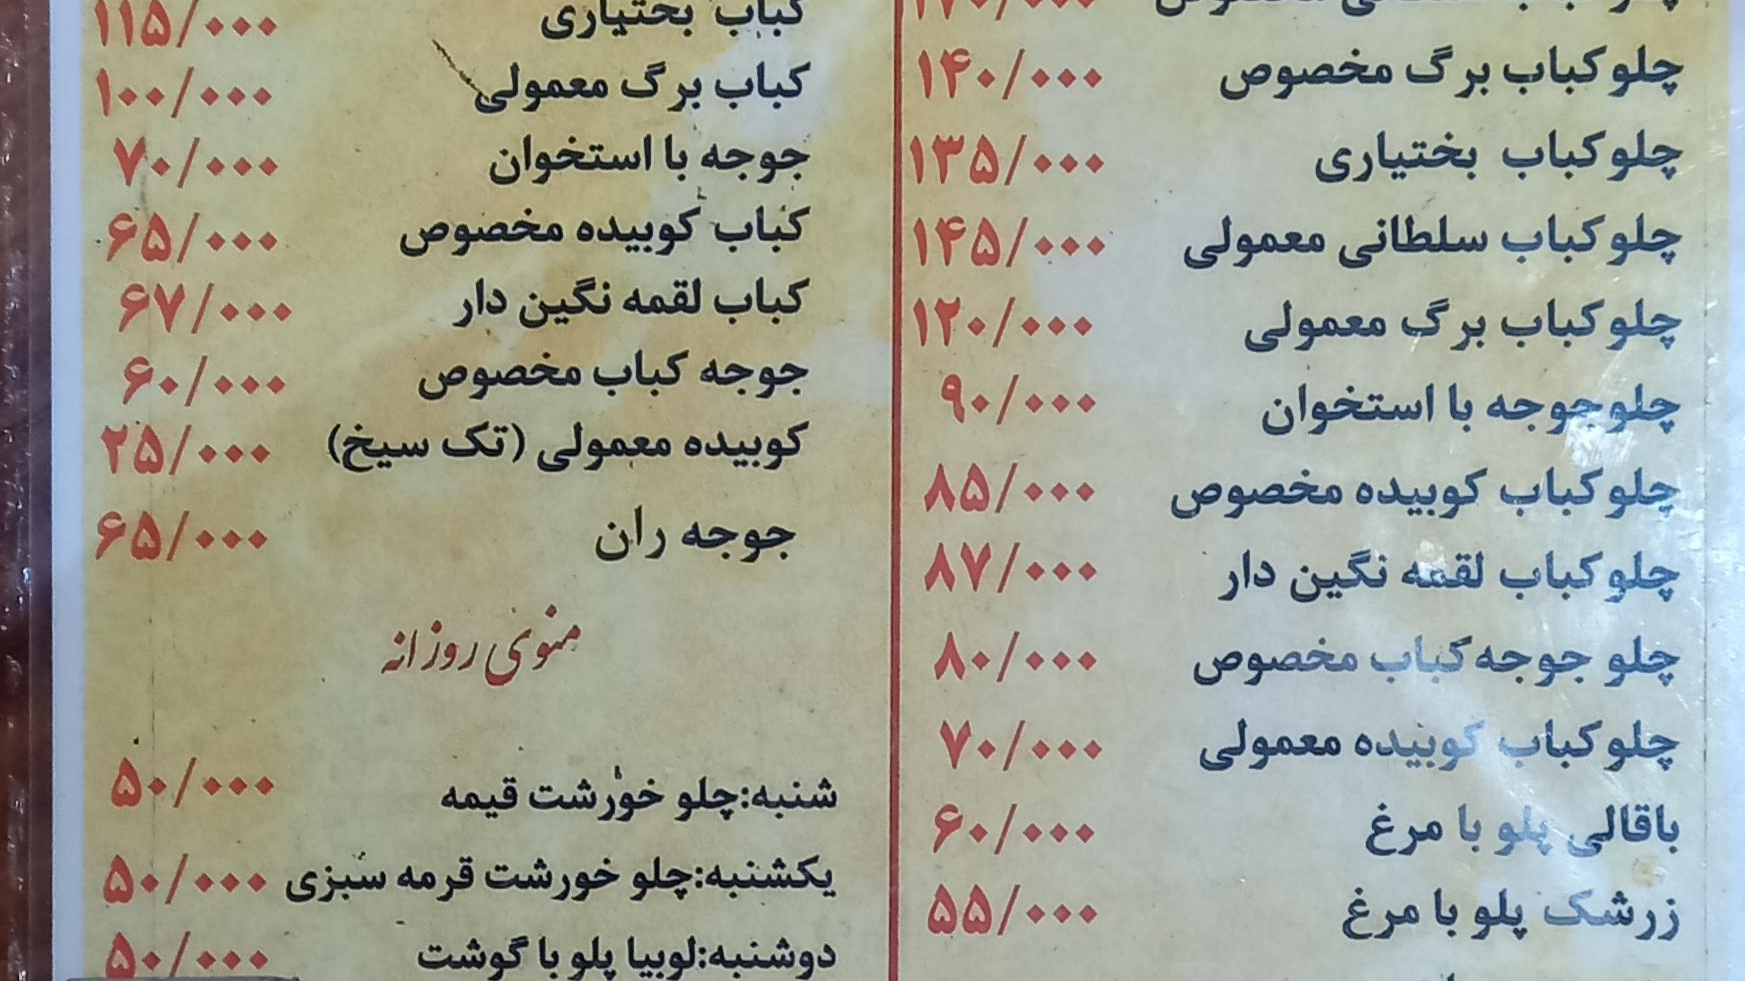 چلوکباب برگ مخصوص ۱۴۰/۰۰۰
چلوکباب بختیاری ۱۳۵/۰۰۰
چلوکباب سلطانی معمولی ۱۴۵/۰۰۰
چلوکباب برگ معمولی ۱۲۰/۰۰۰
چلوجوجه با استخوان ۹۰/۰۰۰
چلوکباب کوبیده مخصوص ۸۵/۰۰۰
چلوکباب لقمه نگین دار ۸۷/۰۰۰
چلو جوجه کباب مخصوص ۸۰/۰۰۰
چلوکباب کوبیده معمولی ۷۰/۰۰۰
باقالی پلو با مرغ ۶۰/۰۰۰
زرشک پلو با مرغ ۵۵/۰۰۰
کباب بختیاری ۱۱۵/۰۰۰
کباب برگ معمولی ۱۰۰/۰۰۰
جوجه با استخوان ۷۰/۰۰۰
کباب کوبیده مخصوص ۶۵/۰۰۰
کباب لقمه نگین دار ۶۷/۰۰۰
جوجه کباب مخصوص ۶۰/۰۰۰
کوبیده معمولی (تک سیخ) ۲۵/۰۰۰
جوجه ران ۶۵/۰۰۰
منوی روزانه
شنبه:چلو خورشت قیمه ۵۰/۰۰۰
یکشنبه:چلو خورشت قرمه سبزی ۵۰/۰۰۰
دوشنبه:لوبیا پلو با گوشت ۵۰/۰۰۰